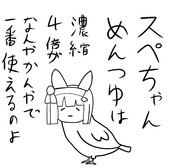 スペちゃん
めんつゆは
濃縮
4倍が
なんやかんやで
一番使えるのよ